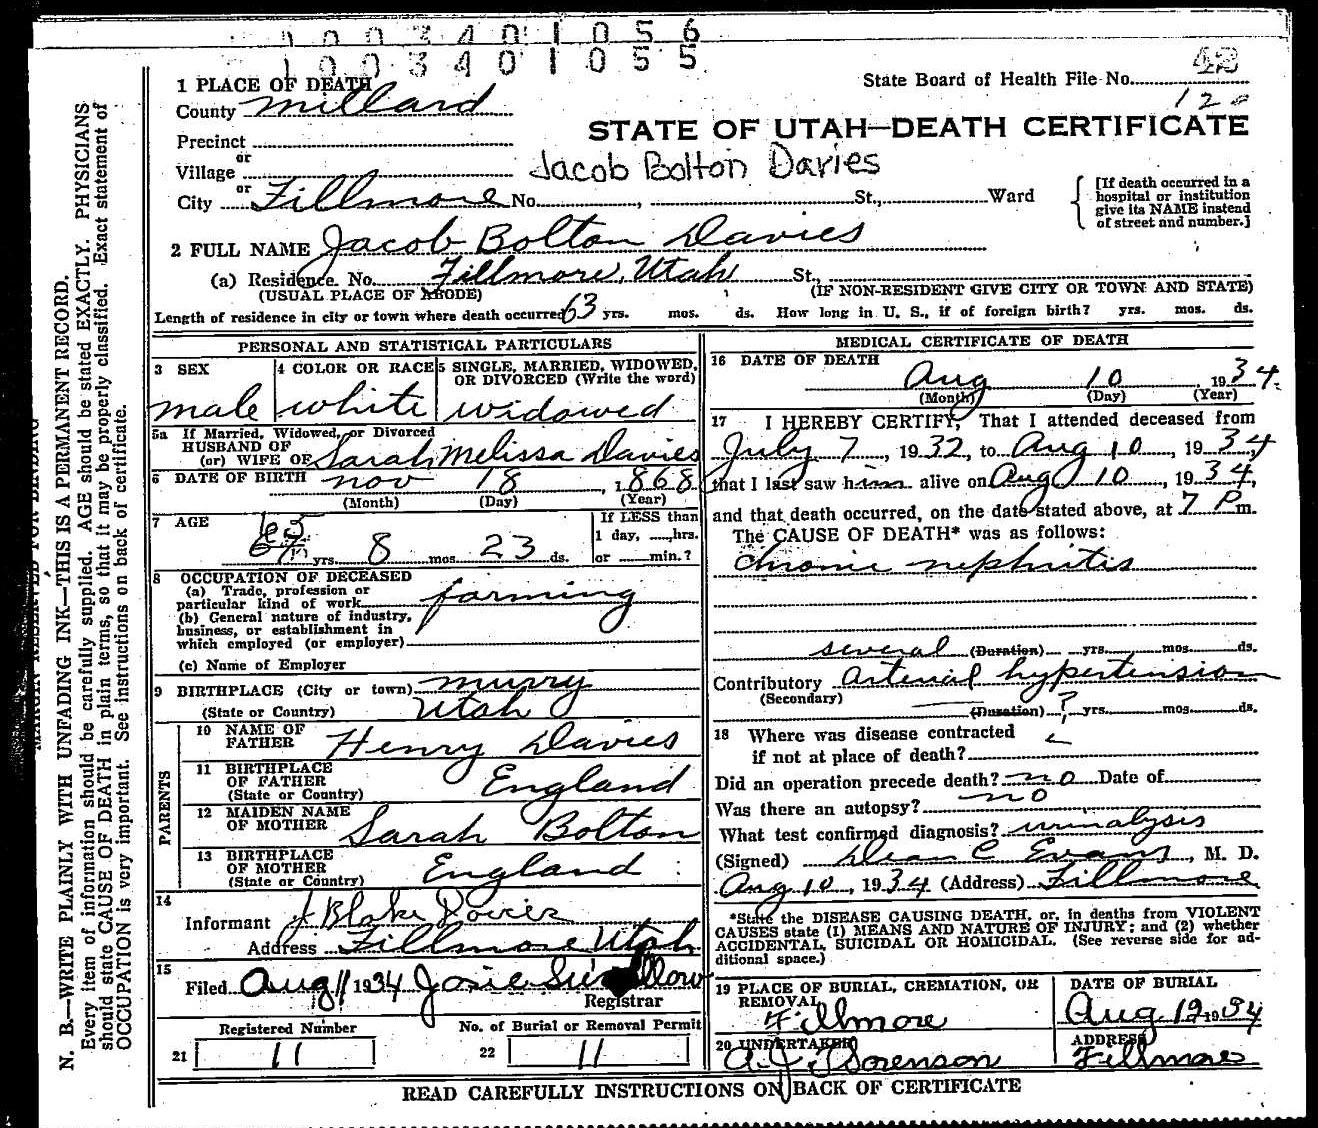 1 0 0 3 4 0 1 0 5 6
1 0 0 3 4 0 1 0 5 5
1 PLACE OF DEATH
State Board of Health File No. 43
County Millard
120
STATE OF UTAH—DEATH CERTIFICATE
Precinct
or
Village
Jacob Bolton Davies
or
City Fillmore No. , St., Ward
[If death occurred in a hospital or institution give its NAME instead of street and number.]
2 FULL NAME Jacob Bolton Davies
(a) Residence. No. Fillmore, Utah St.,
(USUAL PLACE OF ABODE)
(IF NON-RESIDENT GIVE CITY OR TOWN AND STATE)
Length of residence in city or town where death occurred 63 yrs. mos. ds. How long in U. S., if of foreign birth? yrs. mos. ds.
PERSONAL AND STATISTICAL PARTICULARS
3 SEX
male
4 COLOR OR RACE
white
5 SINGLE, MARRIED, WIDOWED,
OR DIVORCED (Write the word)
widowed
5a If Married, Widowed, or Divorced
HUSBAND OF
(or) WIFE OF Sarah Melissa Davies
6 DATE OF BIRTH nov 18, 1868
(Month) (Day) (Year)
7 AGE 65 yrs. 8 mos. 23 ds.
If LESS than
1 day, ....hrs.
or ....min.?
8 OCCUPATION OF DECEASED
(a) Trade, profession or
particular kind of work farming
(b) General nature of industry,
business, or establishment in
which employed (or employer)
(c) Name of Employer
9 BIRTHPLACE (City or town) murry
(State or Country) Utah
PARENTS
10 NAME OF
FATHER Henry Davies
11 BIRTHPLACE
OF FATHER
(State or Country) England
12 MAIDEN NAME
OF MOTHER Sarah Bolton
13 BIRTHPLACE
OF MOTHER
(State or Country) England
14
Informant J Blake Davies
Address Fillmore Utah
15
Filed Aug 11 1934 Josie
Registrar
Registered Number
21 11
No. of Burial or Removal Permit
22 11
MEDICAL CERTIFICATE OF DEATH
16 DATE OF DEATH
Aug 10, 1934.
(Month) (Day) (Year)
17 I HEREBY CERTIFY, That I attended deceased from
July 7, 1932, to Aug 10, 1934
that I last saw him alive on Aug 10, 1934,
and that death occurred, on the date stated above, at 7 P.m.
The CAUSE OF DEATH* was as follows:
chronic nephritis
several (Duration) yrs. mos. ds.
Contributory Arterial hypertension
(Secondary)
(Duration) ? yrs. mos. ds.
18 Where was disease contracted
if not at place of death?
Did an operation precede death? no Date of
Was there an autopsy? no
What test confirmed diagnosis? urinalysis
(Signed) Dean C Evans, M. D.
Aug 10, 1934 (Address) Fillmore
*State the DISEASE CAUSING DEATH, or, in deaths from VIOLENT
CAUSES state (1) MEANS AND NATURE OF INJURY: and (2) whether
ACCIDENTAL, SUICIDAL OR HOMICIDAL. (See reverse side for ad-
ditional space.)
19 PLACE OF BURIAL, CREMATION, OR
REMOVAL
Fillmore
DATE OF BURIAL
Aug 12, 1934
20 UNDERTAKER
A. J. Sorenson
ADDRESS
Fillmore
READ CAREFULLY INSTRUCTIONS ON BACK OF CERTIFICATE
MARGIN RESERVED FOR BINDING
N. B.—WRITE PLAINLY WITH UNFADING INK—THIS IS A PERMANENT RECORD.
Every item of information should be carefully supplied. AGE should be stated EXACTLY. PHYSICIANS
should state CAUSE OF DEATH in plain terms, so that it may be properly classified. Exact statement of
OCCUPATION is very important. See instructions on back of certificate.